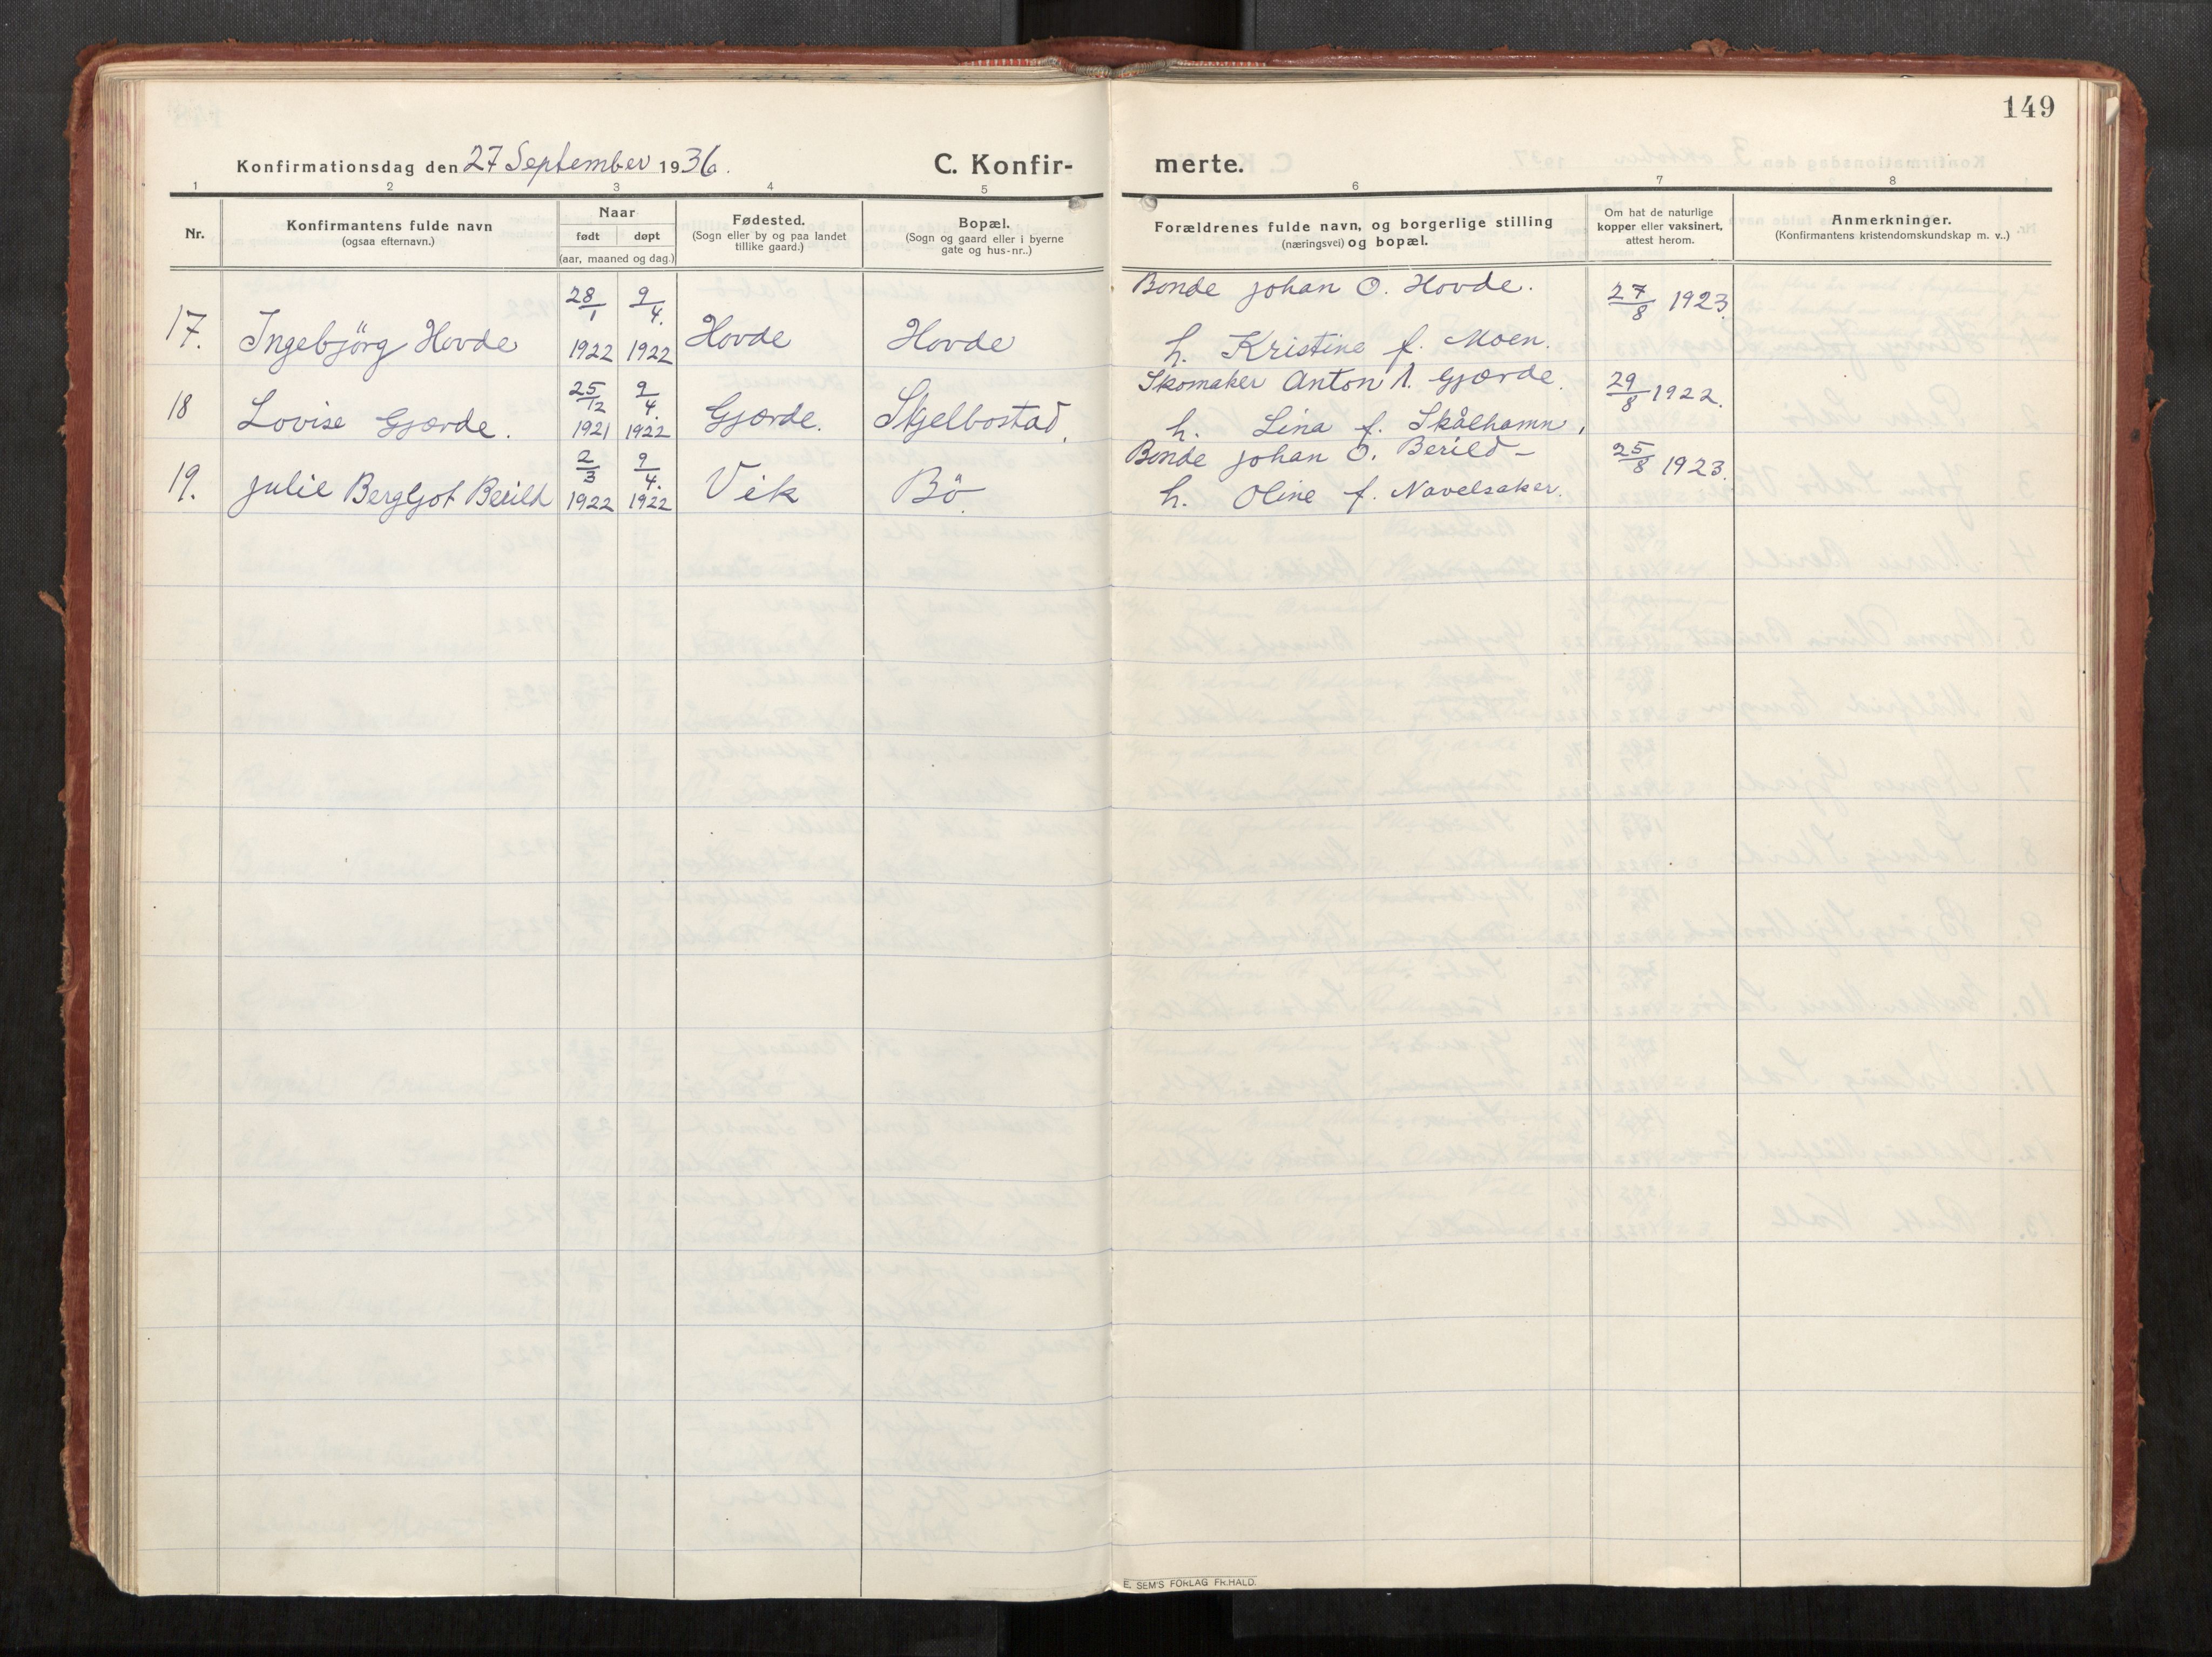 149
Konfirmationsdag den 27 September 1936.
C. Konfirmerte.
1 2 3 4 5 6 7 8
Nr.
Konfirmantens fulde navn
(ogsaa efternavn.)
Naar
født døpt
(aar, maaned og dag.)
Fødested.
(Sogn eller by og paa landet
tillike gaard.)
Bopæl.
(Sogn og gaard eller i byerne
gate og hus-nr..)
Forældrenes fulde navn, og borgerlige stilling
(næringsvei) og bopæl.
Om hat de naturlige
kopper eller vaksinert,
attest herom.
Anmerkninger.
(Konfirmantens kristendomskundskap m. v..)
28/1 9/4. Bonde Johan O. Hovde. 27/8 1923.
17. Ingebjörg Hovde 1922 1922 Hovde Hovde h. Kristine f. Moen.
25/12 9/4. Skomaker Anton A. Gjærde. 29/8 1922.
18 Lovise Gjærde. 1921 1922 Gjærde. Skjelbostad. h. Lina f. Skålhamn.
2/3 9/4. Bonde Johan O. Berild - 25/8 1923.
19. Julie Bergljot Berild 1922 1922 Vik Bö. h. Oline f. Navelsaker.
E. SEM'S FORLAG FR.HALD.